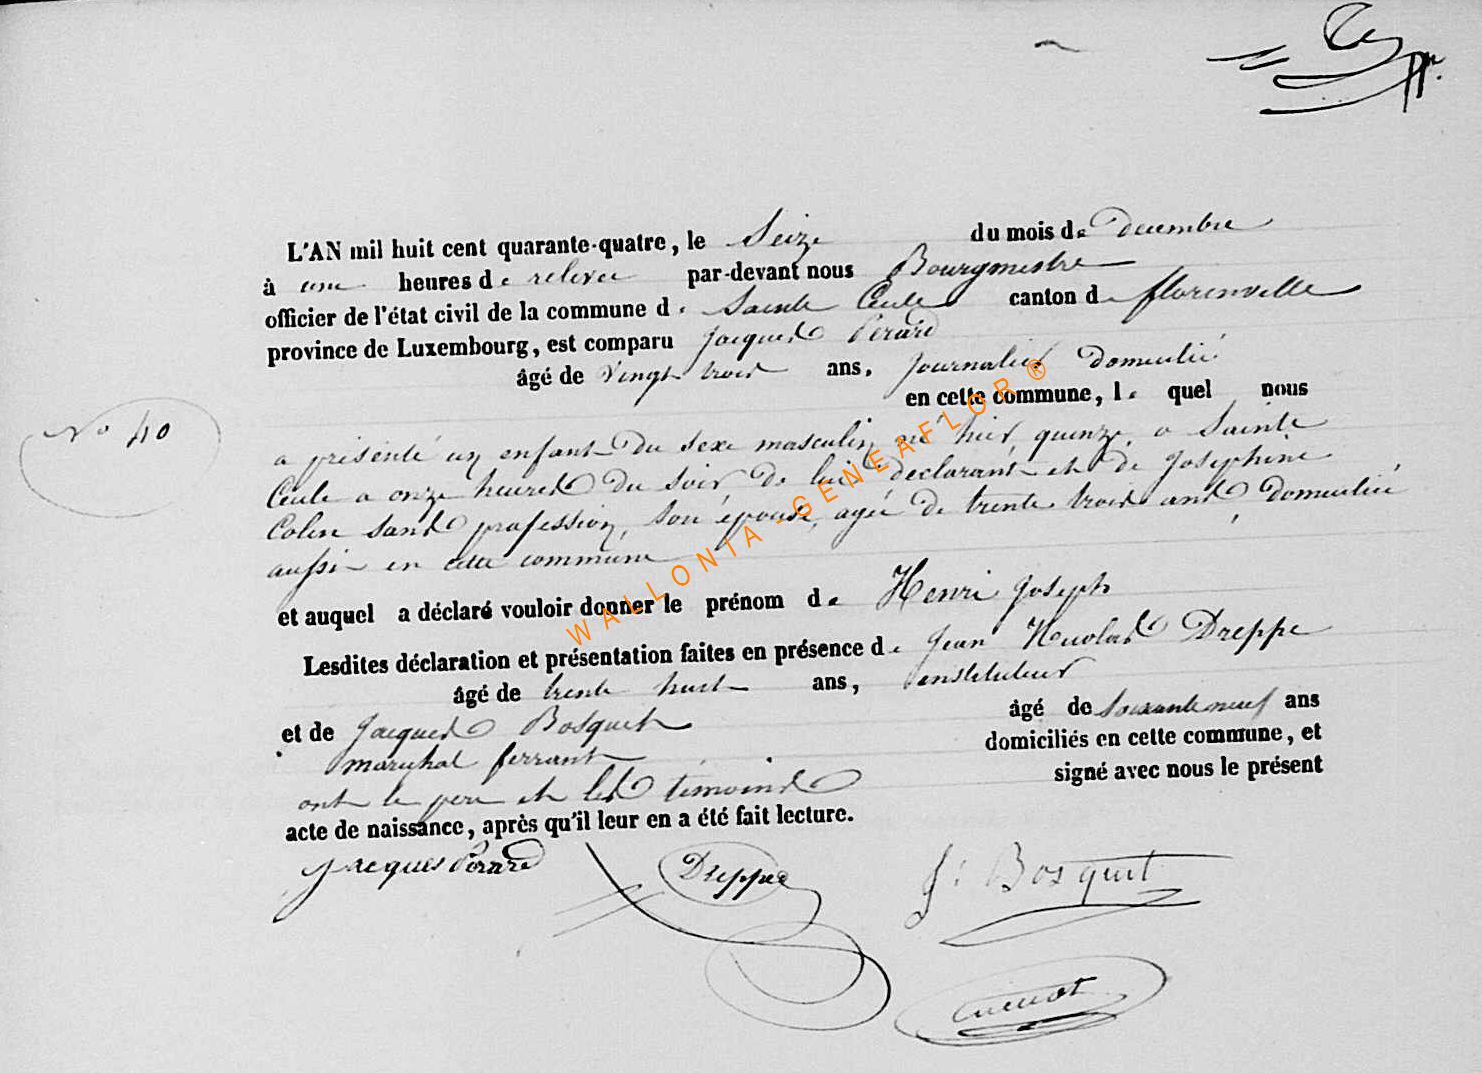 L'AN mil huit cent quarante-quatre, le Seize du mois de decembre
à une heures de relevée par-devant nous Bourgmestre
officier de l'état civil de la commune de Sainte Cecile canton de florenville
province de Luxembourg, est comparu Jacques Perard
âgé de vingt trois ans, journalier domicilié
en cette commune, lequel nous
No 40
a présenté un enfant du sexe masculin né hier quinze, a Sainte
Cecile a onze heures du soir de lui déclarant et de Josephine
Colin sans profession, son épouse, agée de trente trois ans, domiciliée
aussi en cette commune
et auquel a déclaré vouloir donner le prénom de Henri Joseph
Lesdites déclaration et présentation faites en présence de Jean Nicolas Dreppe
âgé de trente huit ans, instituteur
et de Jacques Bosquet âgé de soixante neuf ans
marechal ferrant domiciliés en cette commune, et
ont le pere et les témoins signé avec nous le présent
acte de naissance, après qu'il leur en a été fait lecture.
Jacques Perard Dreppe J: Bosquet
WALLONIA - GENEAFLOR ®